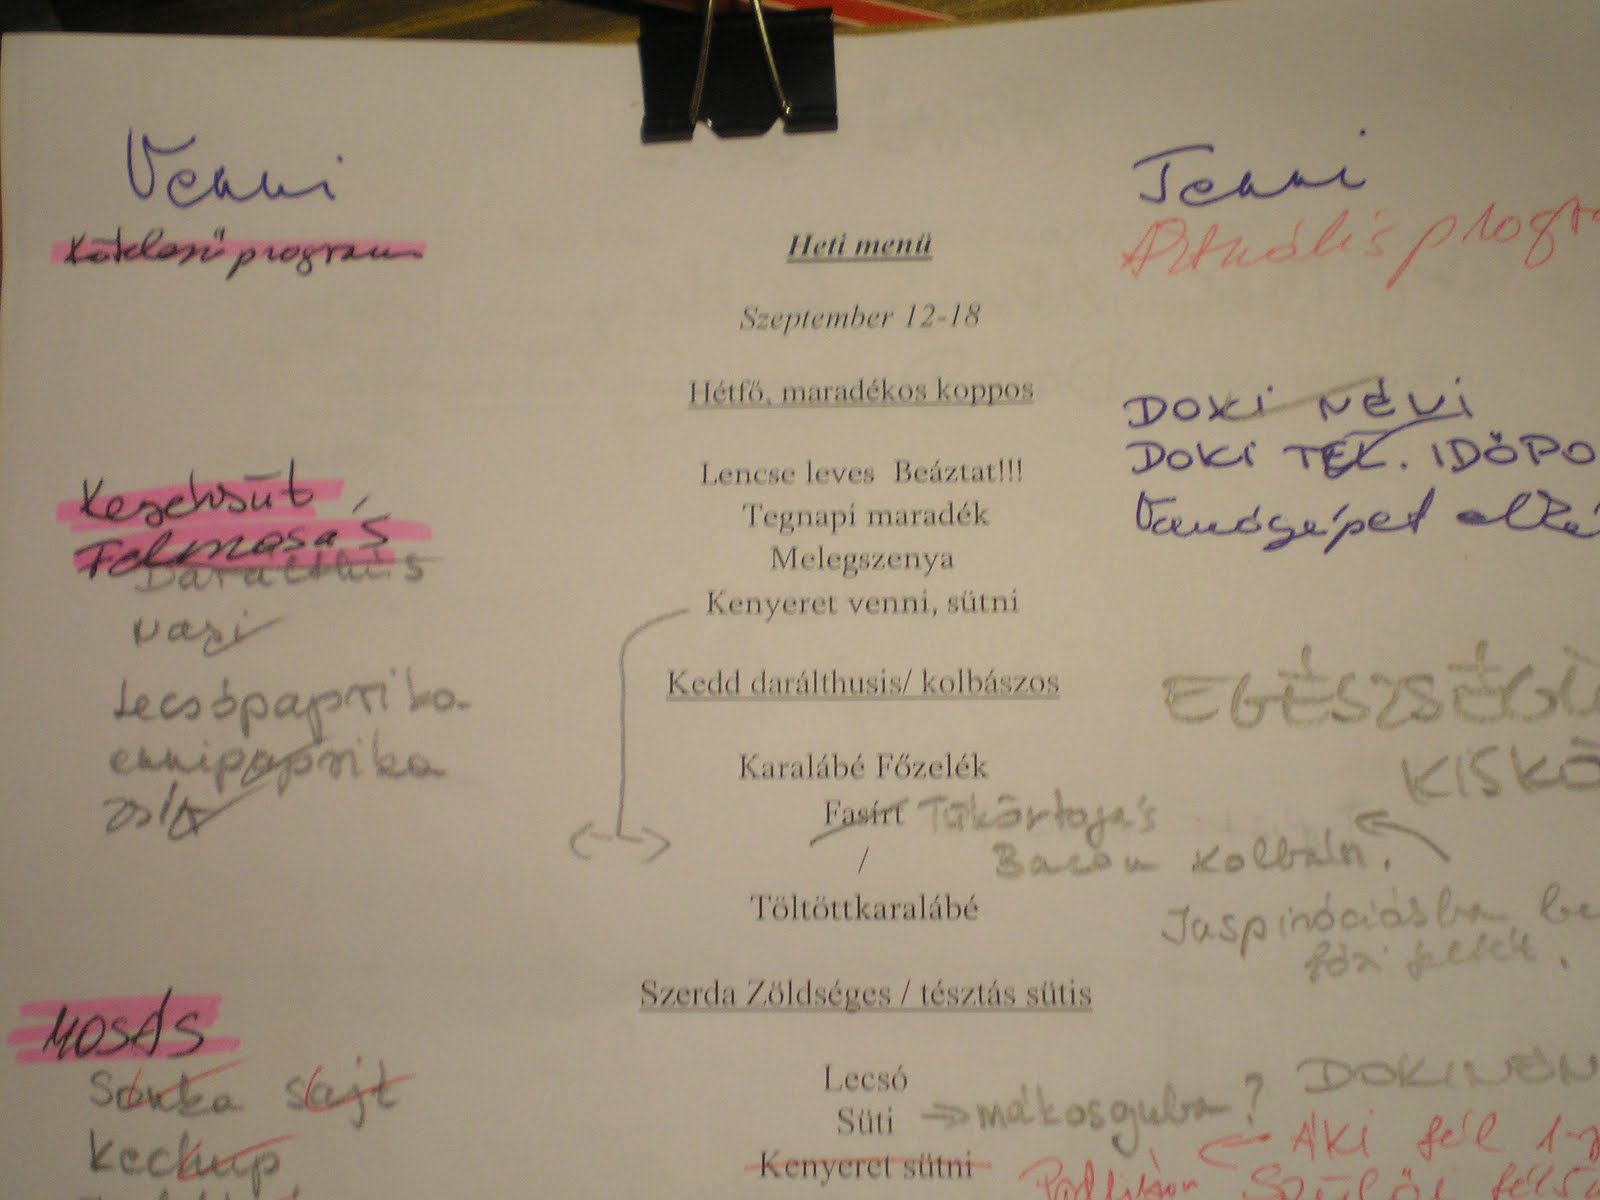 Venni
Kötelező program
Keselvsüt
Felmosás
Darálthús
rizs
Lecsópaprika
ennipaprika
MOSÁS
Sonka sajt
Keckup
Heti menü
Szeptember 12-18
Hétfő, maradékos koppos
Lencse leves Beáztat!!!
Tegnapi maradék
Melegszenya
Kenyeret venni, sütni
Kedd darálthusis/ kolbászos
Karalábé Főzelék
Fasírt Tükörtojás
/ Bacon kolbász.
Töltöttkaralábé
Szerda Zöldséges / tésztás sütis
Lecsó
Süti → mákosguba?
Kenyeret sütni
Tenni
Aktuális progr
DOKI NÉVI
DOKI TEL. IDŐPO
Varrógépet elké
EGÉSZSÉGÜ
KISKÖ
Inspirációsba be
főzi felét.
DOKINÉN
Aki fél 1-
Szülői